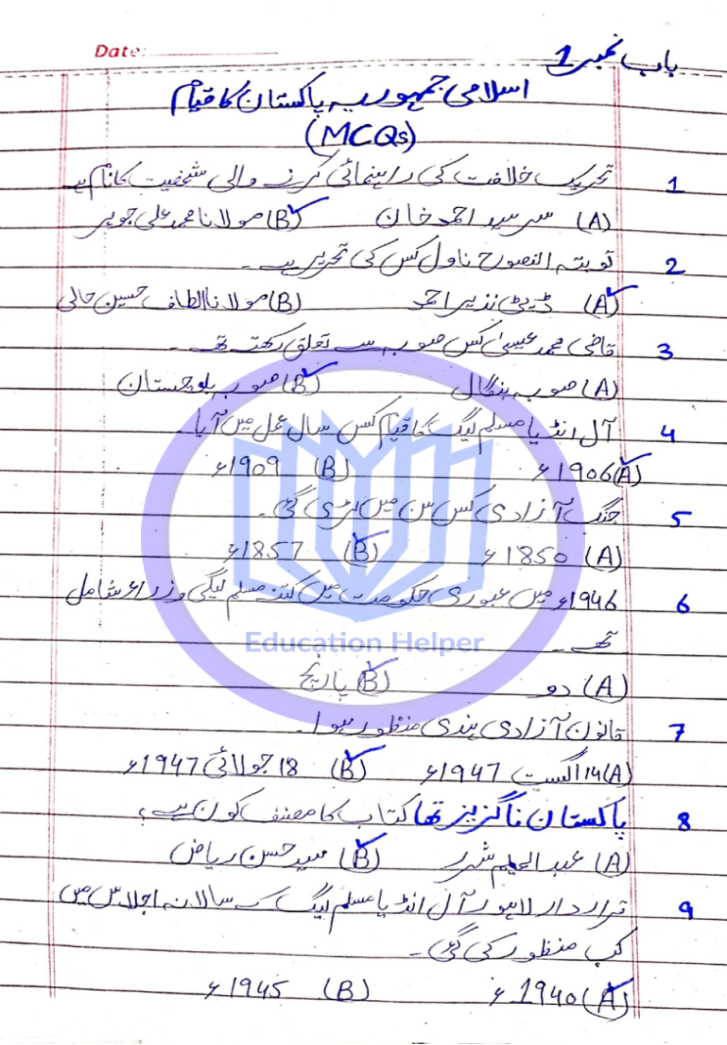 Date:
باب نمبر 1
اسلامی جمہوریہ پاکستان کا قیام
(MCQs)
1 تحریک خلافت کی راہنمائی کرنے والی شخصیت کا نام ہے
(A) سرسید احمد خان (B) مولانا محمد علی جوہر
2 توبتہ النصوح ناول کس کی تحریر ہے۔
(A) ڈپٹی نذیر احمد (B) مولانا الطاف حسین حالی
3 قاضی محمد عیسیٰ کس صوبہ سے تعلق رکھتے تھے۔
(A) صوبہ بنگال (B) صوبہ بلوچستان
4 آل انڈیا مسلم لیگ کا قیام کس سال عمل میں آیا۔
(A) 1906ء (B) 1909ء
5 جنگ آزادی کس سن میں لڑی گئی۔
(A) 1850ء (B) 1857ء
6 1946ء میں عبوری حکومت میں کتنے مسلم لیگی وزراء شامل
تھے۔
(A) دو (B) پانچ
7 قانون آزادی ہندی منظور ہوا۔
(A) 14 اگست 1947ء (B) 18 جولائی 1947ء
8 پاکستان ناگزیز تھا کتاب کا مصنف کون ہے؟
(A) عبدالحلیم شرر (B) سید حسن ریاض
9 قرارداد لاہور آل انڈیا مسلم لیگ کے سالانہ اجلاس میں
کب منظور کی گئی۔
(A) 1940ء (B) 1945ء
Education Helper